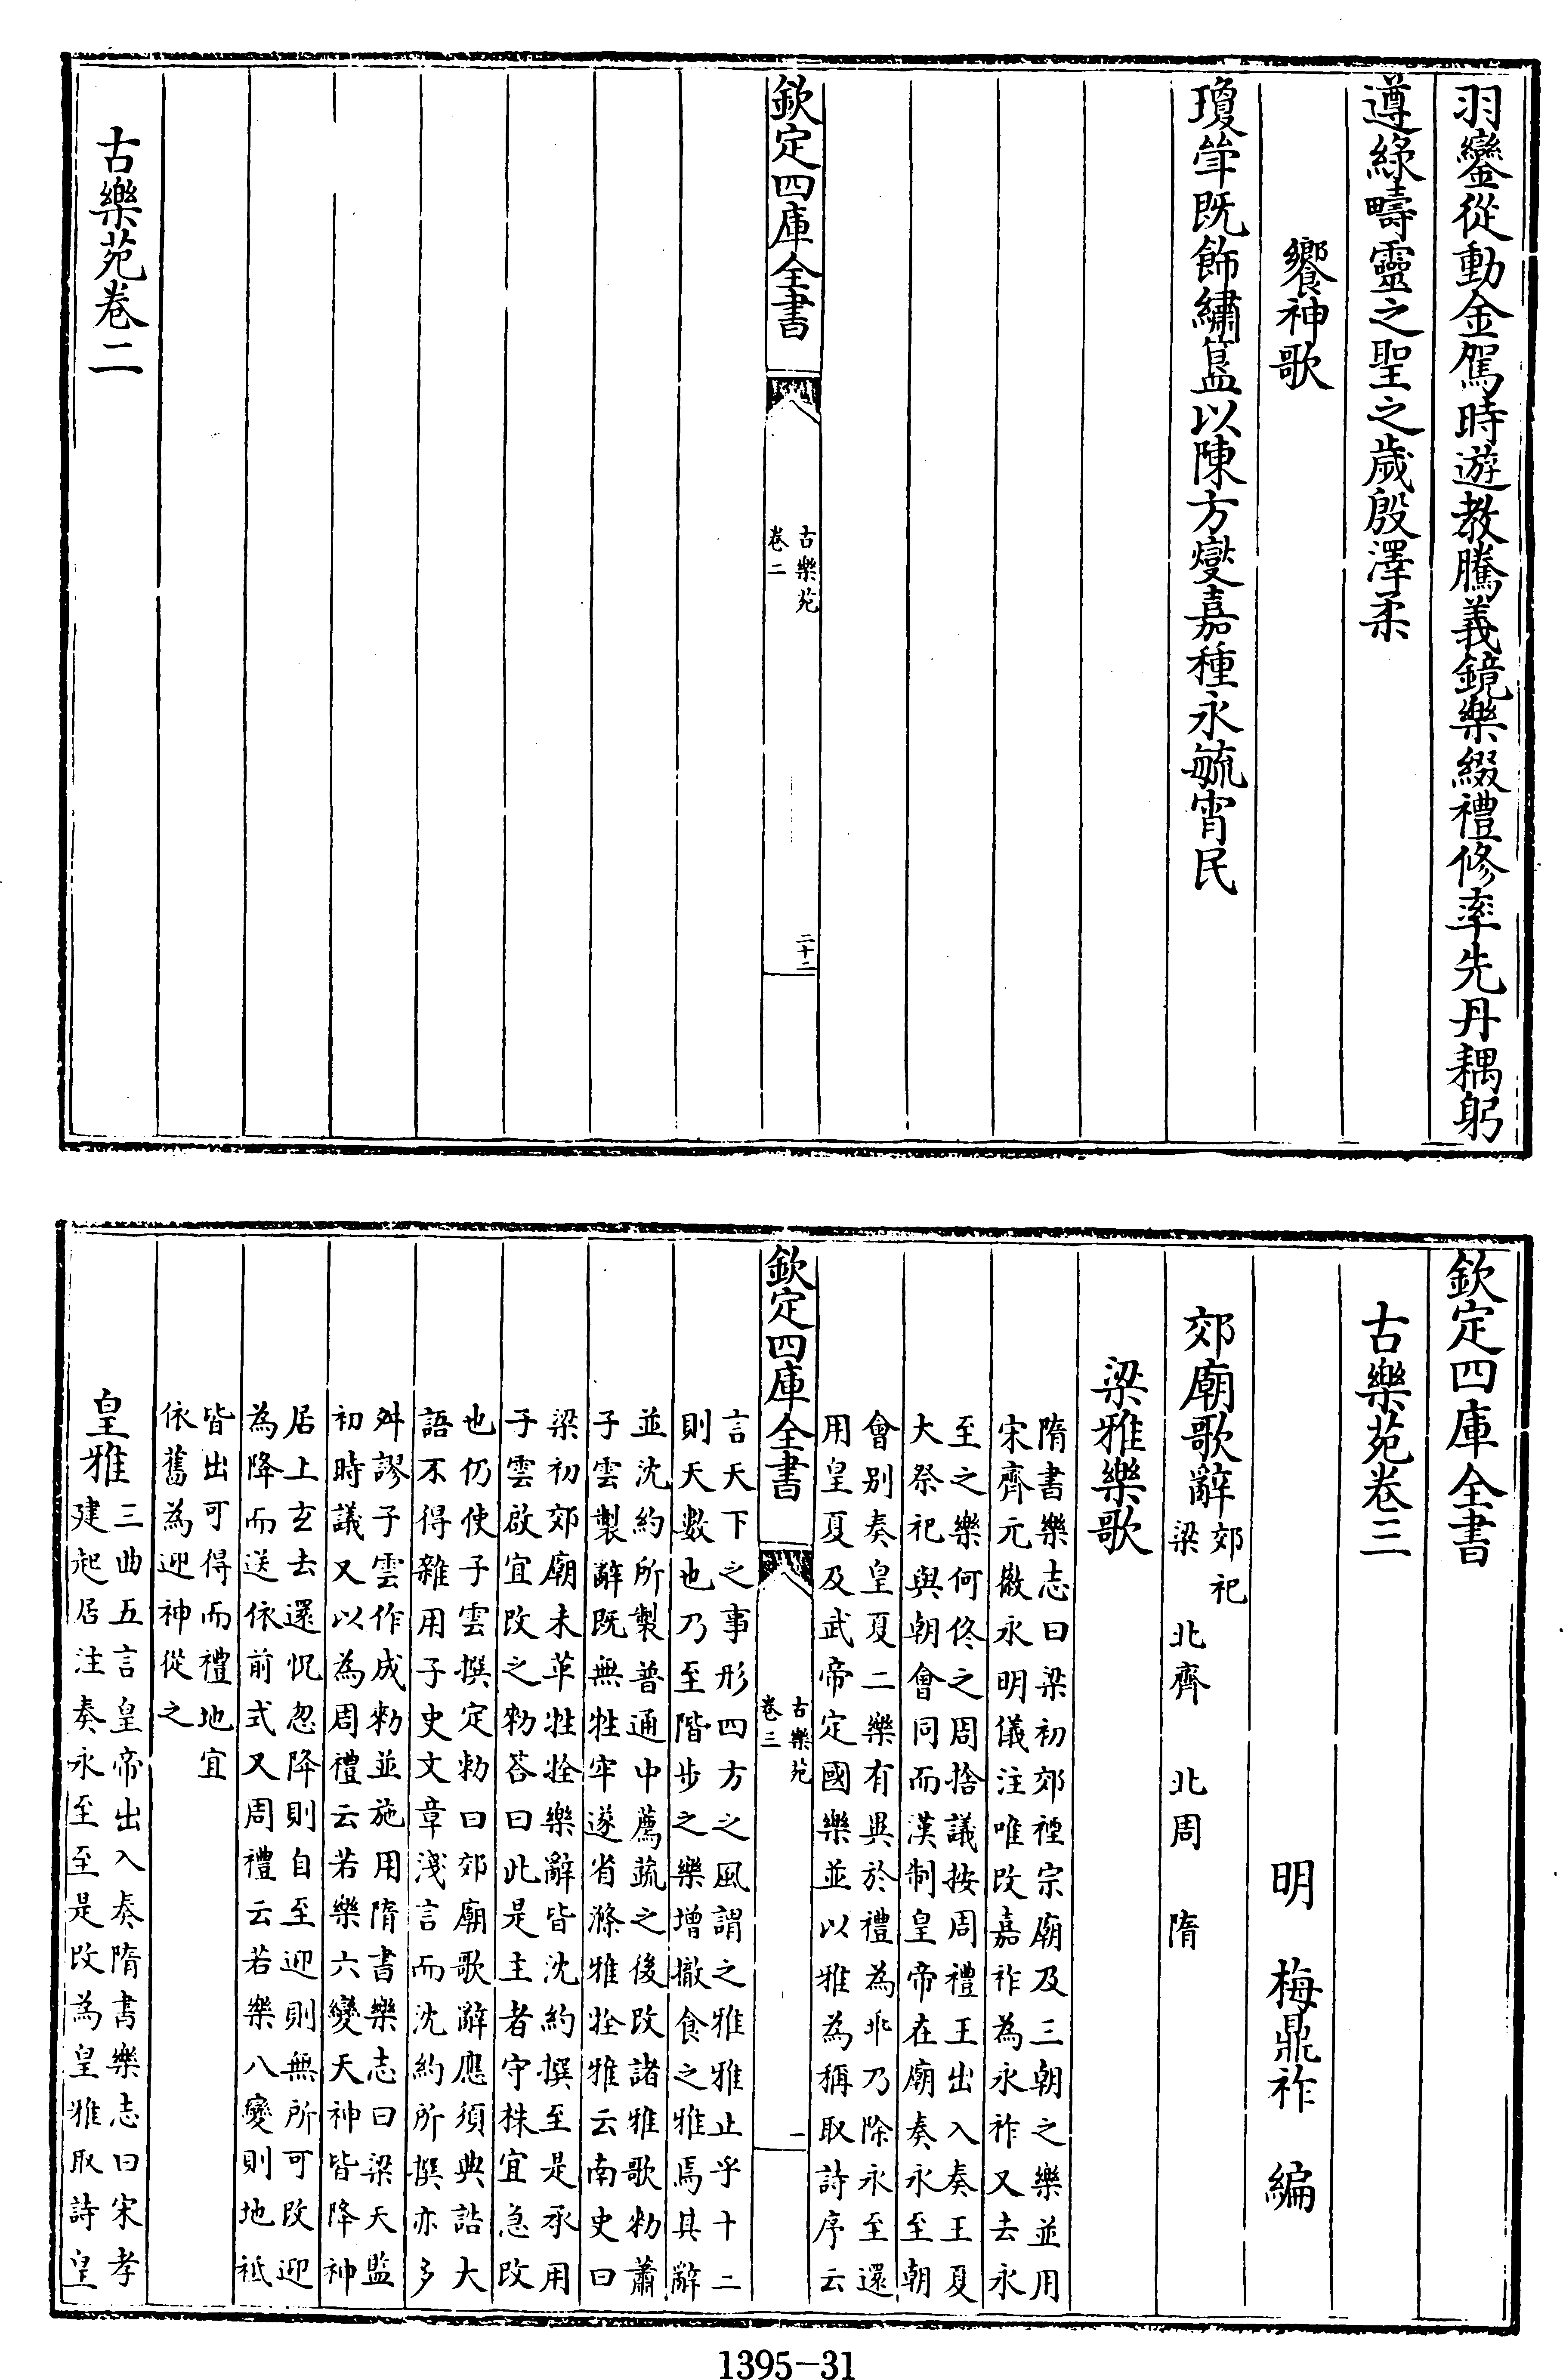 羽鑾從動金駕時遊教騰義鏡樂綴禮修率先丹耦躬
遵綠疇靈之聖之歲殷澤柔
饗神歌
瓊斝既飾繡簋以陳方燮嘉種永毓宵民
欽定四庫全書
古樂苑
卷二
二十二
古樂苑卷二
欽定四庫全書
古樂苑卷三
明 梅鼎祚 編
郊廟歌辭
郊祀
梁 北齊 北周 隋
梁雅樂歌
隋書樂志曰梁初郊禋宗廟及三朝之樂並用
宋齊元徽永明儀注唯改嘉祚為永祚又去永
至之樂何佟之周捨議按周禮王出入奏王夏
大祭祀與朝會同而漢制皇帝在廟奏永至朝
會别奏皇夏二樂有異於禮為乖乃除永至還
用皇夏及武帝定國樂並以雅為稱取詩序云
欽定四庫全書
古樂苑
卷三
一
言天下之事形四方之風謂之雅雅止乎十二
則天數也乃至階步之樂增撤食之雅焉其辭
並沈約所製普通中薦蔬之後改諸雅歌勑蕭
子雲製辭既無牲牢遂省滌雅牷雅云南史曰
梁初郊廟未革牲牷樂辭皆沈約撰至是承用
子雲啟宜改之勑荅曰此是主者守株宜急改
也仍使子雲撰定勑曰郊廟歌辭應須典誥大
語不得雜用子史文章淺言而沈約所撰亦多
舛謬子雲作成勑並施用隋書樂志曰梁天監
初時議又以為周禮云若樂六變天神皆降神
居上玄去還怳忽降則自至迎則無所可改迎
為降而送依前式又周禮云若樂八變則地祗
皆出可得而禮地宜
依舊為迎神從之
皇雅
三曲五言皇帝出入奏隋書樂志曰宋孝
建起居注奏永至至是改為皇雅取詩皇
1395-31